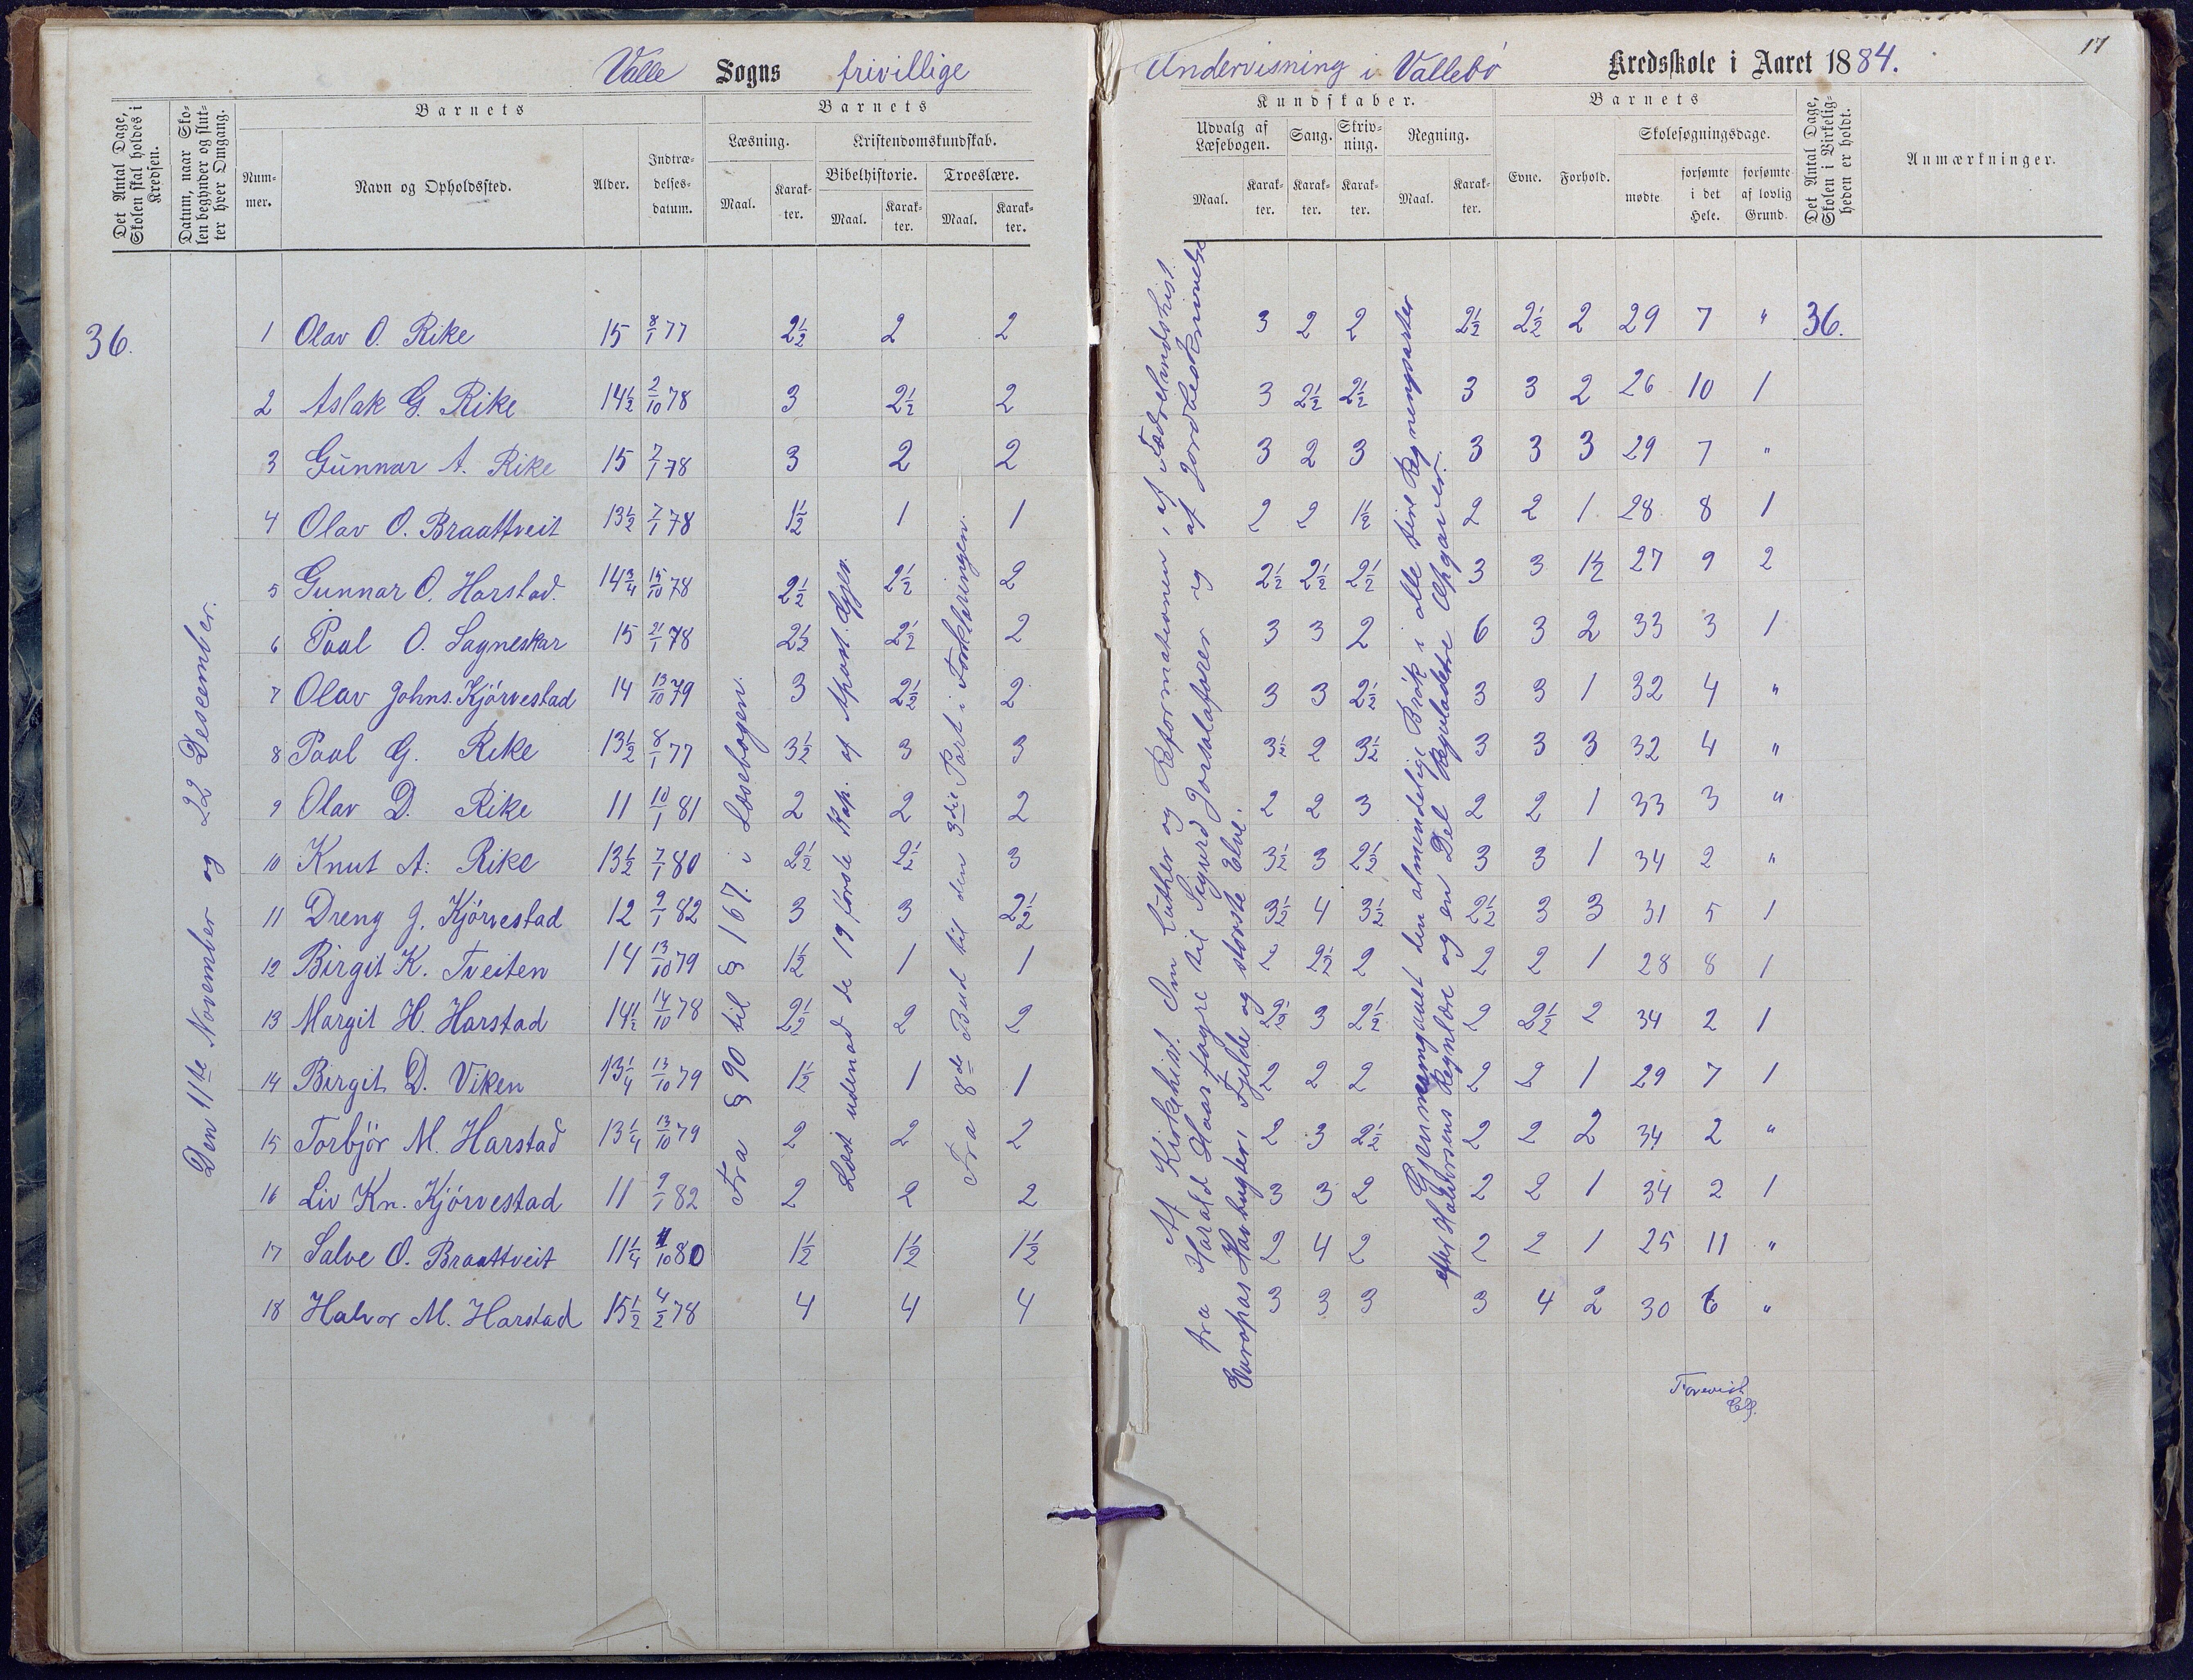 Valle Sogns frivillige Undervisning i Vallebø Kredsskole i Aaret 1884.
17
Det Antal Dage, Skolen skal holdes i Kredsen.
Datum, naar Skolen begynder og slutter hver Omgang.
Barnets
Nummer.
Navn og Opholdssted.
Alder.
Indtrædelsesdatum.
Barnets
Læsning.
Maal.
Karakter.
Kristendomskundskab.
Bibelhistorie.
Maal.
Karakter.
Troeslære.
Maal.
Karakter.
Kundskaber.
Udvalg af Læsebogen.
Maal.
Karakter.
Sang.
Karakter.
Skrivning.
Karakter.
Regning.
Maal.
Karakter.
Barnets
Evne.
Forhold.
Skolesøgningsdage.
mødte
forsømte i det Hele.
forsømte af lovlig Grund.
Det Antal Dage, Skolen i Virkeligheden er holdt.
Anmærkninger.
36.
Den 11te November og 22 Desember.
Fra § 90 til § 167. i Læsebogen.
Læst udenad de 19 første Kap. af Apost. Gjer.
Fra 8de Bud til den 3die Part i Forklaringen.
Af Kirkehist. Om Luther og Reformationen, af Fædrelandshist.
fra Harald Haarfagre til Sigurd Jorsalafarer og af Jordbeskrivelse
Europas Havbugter, Fjelde og største Elve.
Gjennemgaaet den almindelige Brøk i alle sine Regningsarter
efter Halvorsens Regnlære og en Del Opgaver.
1 Olav O. Rike 15 8/1 77 2½ 2 2 3 2 2 2½ 2½ 2 29 7 " 36.
2 Aslak G. Rike 14½ 2/10 78 3 2½ 2 3 2½ 2½ 3 3 2 26 10 1
3 Gunnar A. Rike 15 7/1 78 3 2 2 3 2 3 3 3 3 29 7 "
4 Olav O. Braattveit 13½ 7/1 78 1½ 1 1 2 2 1½ 2 2 1 28 8 1
5 Gunnar O. Harstad. 14¾ 15/10 78 2½ 2½ 2 2½ 2½ 2½ 3 3 1½ 27 9 2
6 Paal O. Sagneskar 15 21/1 78 2½ 2½ 2 3 3 2 6 3 2 33 3 1
7 Olav Johns. Kjørvestad 14 13/10 79 3 2½ 2 3 3 2½ 3 3 1 32 4 "
8 Paal G. Rike 13½ 8/1 77 3½ 3 3 3½ 2 3½ 3 3 3 32 4 "
9 Olav D. Rike 11 10/1 81 2 2 2 2 2 3 2 2 1 33 3 "
10 Knut A. Rike 13½ 7/1 80 2½ 2½ 3 3½ 3 2½ 3 3 1 34 2 "
11 Dreng J. Kjørvestad 12 9/1 82 3 3 2½ 3½ 4 3½ 2½ 3 3 31 5 1
12 Birgit K. Tveiten 14 13/10 79 1½ 1 1 2 2½ 2 2 2 1 28 8 1
13 Margit H. Harstad 14½ 14/10 78 2½ 2 2 2½ 3 2½ 2 2½ 2 34 2 1
14 Birgit D. Viken 13¼ 13/10 79 1½ 1 1 2 2 2 2 2 1 29 7 1
15 Torbjør M. Harstad 13¼ 13/10 79 2 2 2 2 3 2½ 2 2 2 34 2 "
16 Liv Kn. Kjørvestad 11 9/1 82 2 2 2 3 3 2 2 2 1 34 2 1
17 Salve O. Braattveit 11¼ 11/10 80 1½ 1½ 1½ 2 4 2 2 2 1 25 11 "
18 Halvor M. Harstad 15½ 4/2 78 4 4 4 3 3 3 3 4 2 30 6 "
Forevist